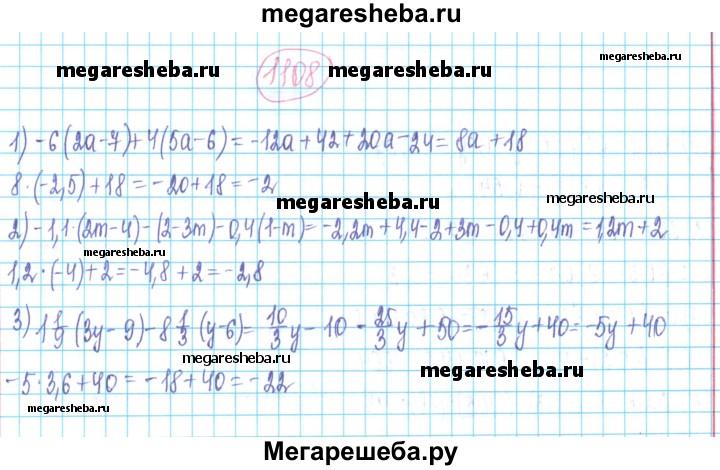 megaresheba.ru
megaresheba.ru
1108
megaresheba.ru
megaresheba.ru
1) -6(2a-7)+4(5a-6)=-12a+42+20a-24=8a+18
8·(-2,5)+18=-20+18=-2
megaresheba.ru
2) -1,1·(2m-4)-(2-3m)-0,4(1-m)=-2,2m+4,4-2+3m-0,4+0,4m=1,2m+2
megaresheba.ru
megaresheba.ru
1,2·(-4)+2=-4,8+2=-2,8
3) 1 1/9 (3y-9)-8 1/3 (y-6)= 10/3 y-10- 25/3 y+50=- 15/3 y+40=-5y+40
megaresheba.ru
megaresheba.ru
megaresheba.ru
-5·3,6+40=-18+40=-22
megaresheba.ru
Мегарешеба.ру